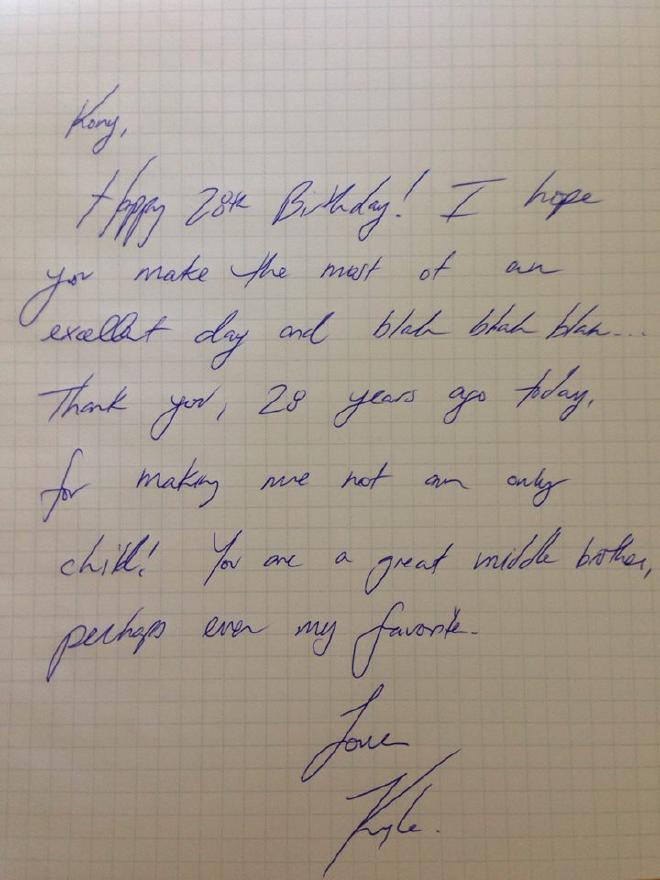 Kory,
Happy 28th Birthday! I hope
you make the most of an
excellent day and blah blah blah...
Thank you, 28 years ago today,
for making me not an only
child! You are a great middle brother,
perhaps even my favorite.
Love
Kyle.